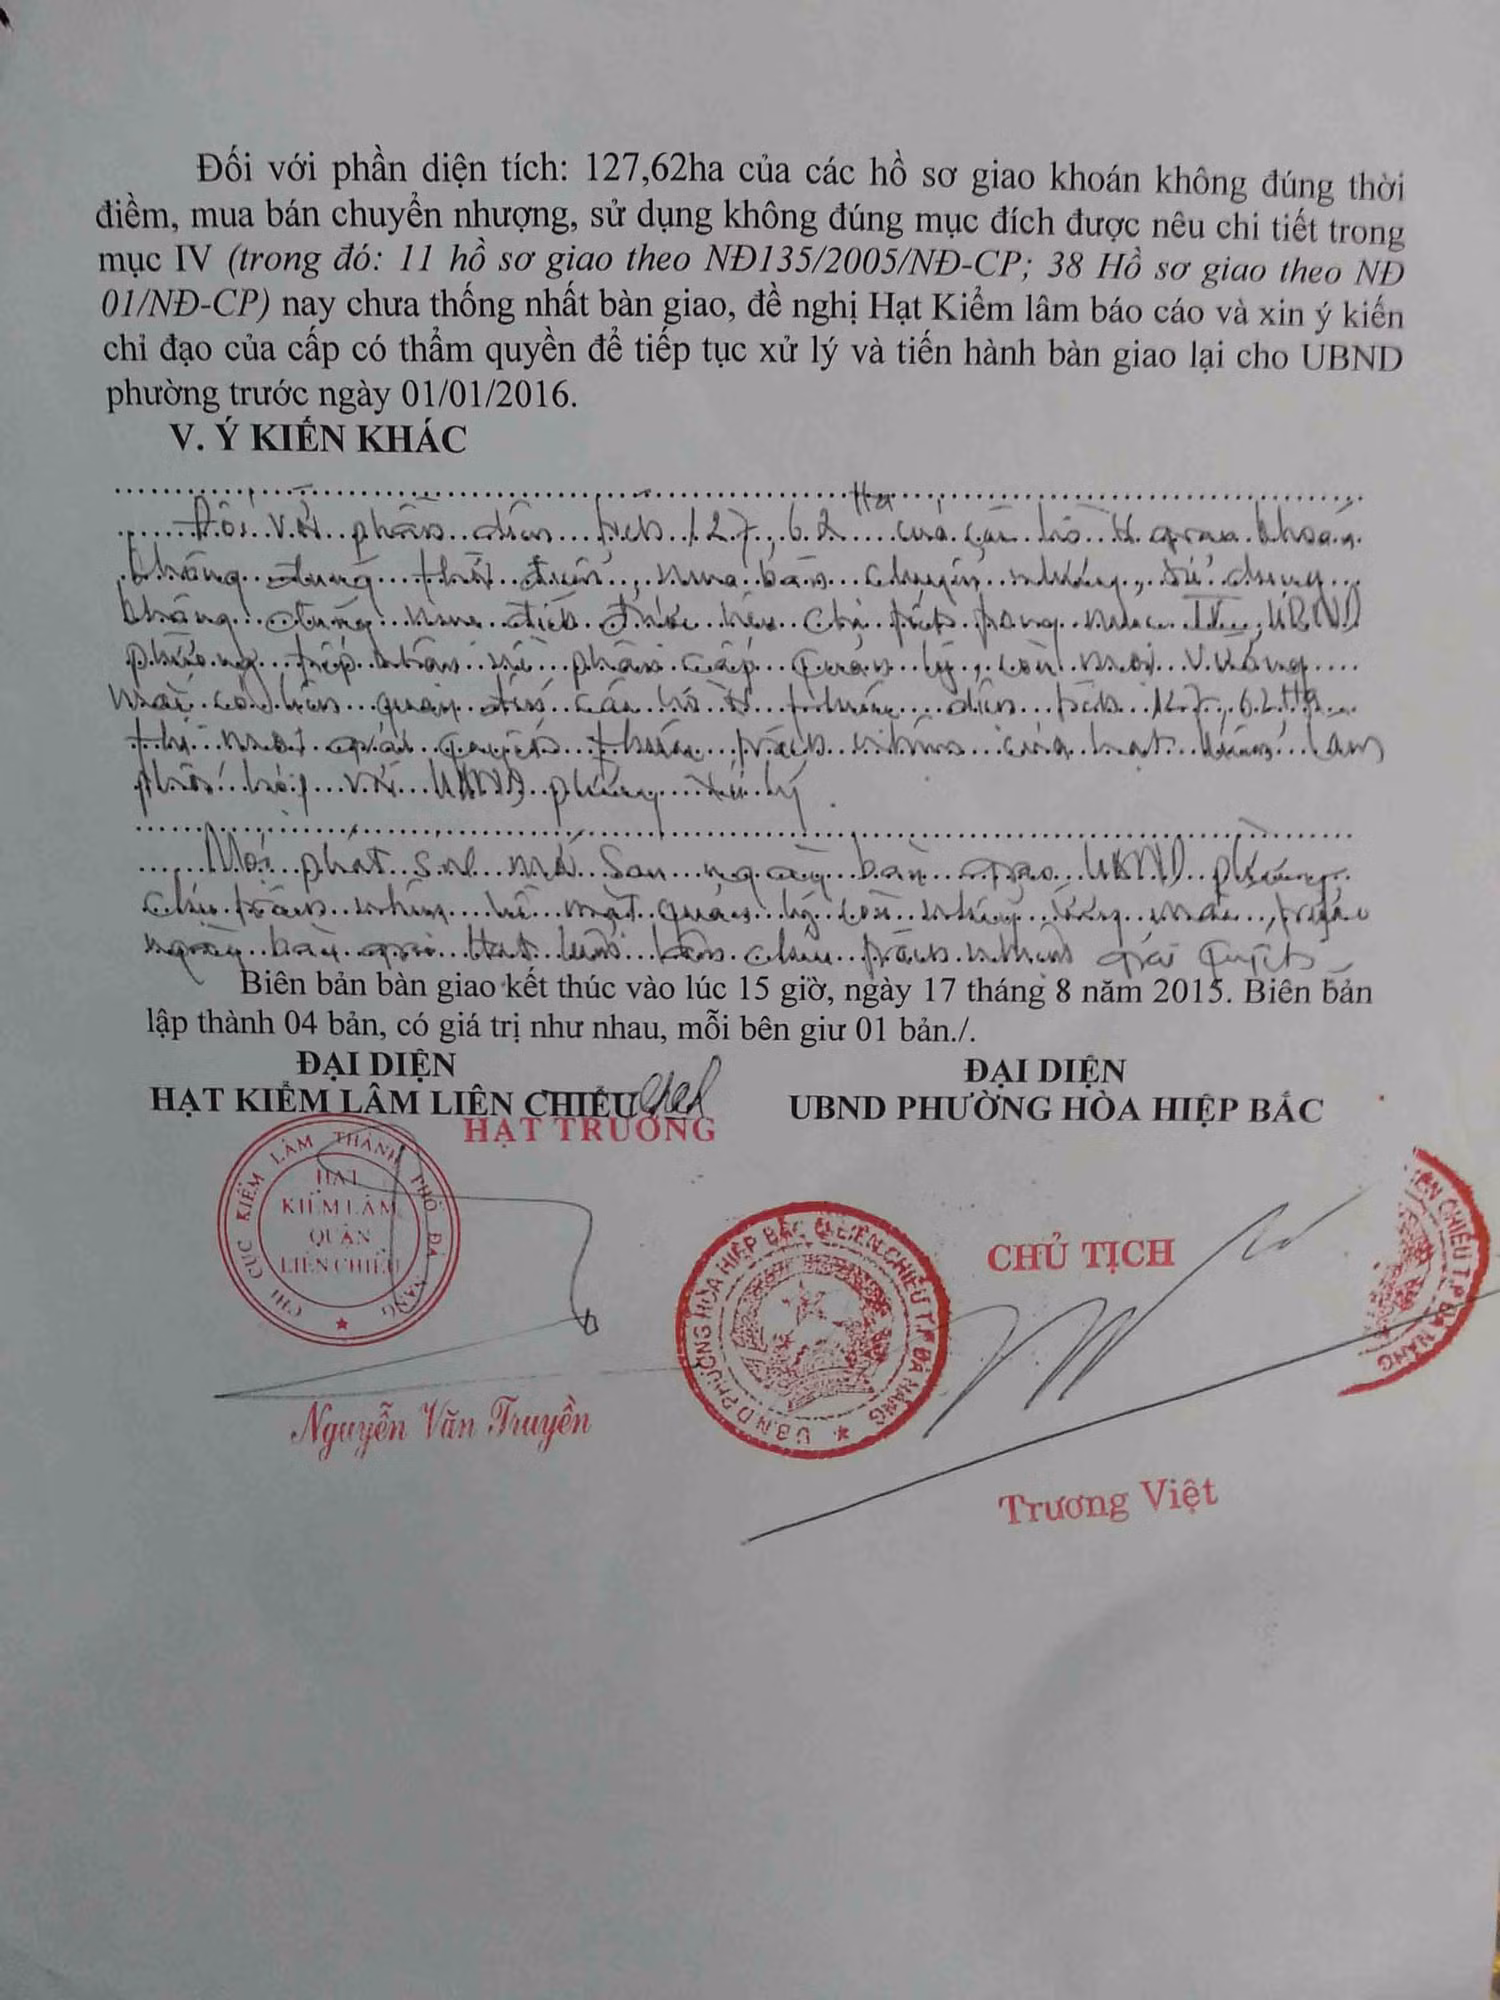 Đối với phần diện tích: 127,62ha của các hồ sơ giao khoán không đúng thời
điềm, mua bán chuyển nhượng, sử dụng không đúng mục đích được nêu chi tiết trong
mục IV (trong đó: 11 hồ sơ giao theo NĐ135/2005/NĐ-CP; 38 Hồ sơ giao theo NĐ
01/NĐ-CP) nay chưa thống nhất bàn giao, đề nghị Hạt Kiểm lâm báo cáo và xin ý kiến
chỉ đạo của cấp có thẩm quyền để tiếp tục xử lý và tiến hành bàn giao lại cho UBND
phường trước ngày 01/01/2016.
V. Ý KIẾN KHÁC
Đối với phần diện tích 127,62 Ha của các hồ sơ giao khoán
không đúng thời điểm, mua bán chuyển nhượng, sử dụng
không đúng mục đích được nêu chi tiết trong mục IV, UBND
phường tiếp nhận về phân cấp quản lý, còn mọi vướng
mắc có liên quan đến các hồ sơ thuộc diện tích 127,62 Ha
thì mọi giải quyết thuộc trách nhiệm của hạt kiểm lâm
phối hợp với UBND phường xử lý.
Mọi phát sinh mới sau ngày bàn giao UBND phường
chịu trách nhiệm về mặt quản lý còn những vướng mắc, trước
ngày bàn giao Hạt kiểm lâm chịu trách nhiệm giải quyết
Biên bản bàn giao kết thúc vào lúc 15 giờ, ngày 17 tháng 8 năm 2015. Biên bản
lập thành 04 bản, có giá trị như nhau, mỗi bên giư 01 bản./.
ĐẠI DIỆN
HẠT KIỂM LÂM LIÊN CHIỂU
HẠT TRƯỞNG
CHI CỤC KIỂM LÂM THÀNH PHỐ ĐÀ NẴNG
HẠT
KIỂM LÂM
QUẬN
LIÊN CHIỂU
Nguyễn Văn Truyền
ĐẠI DIỆN
UBND PHƯỜNG HÒA HIỆP BẮC
CHỦ TỊCH
U.B.N.D PHƯỜNG HÒA HIỆP BẮC Q.LIÊN CHIỂU T.P ĐÀ NẴNG
Trương Việt
IÊN CHIỂU T.P ĐÀ NẴNG